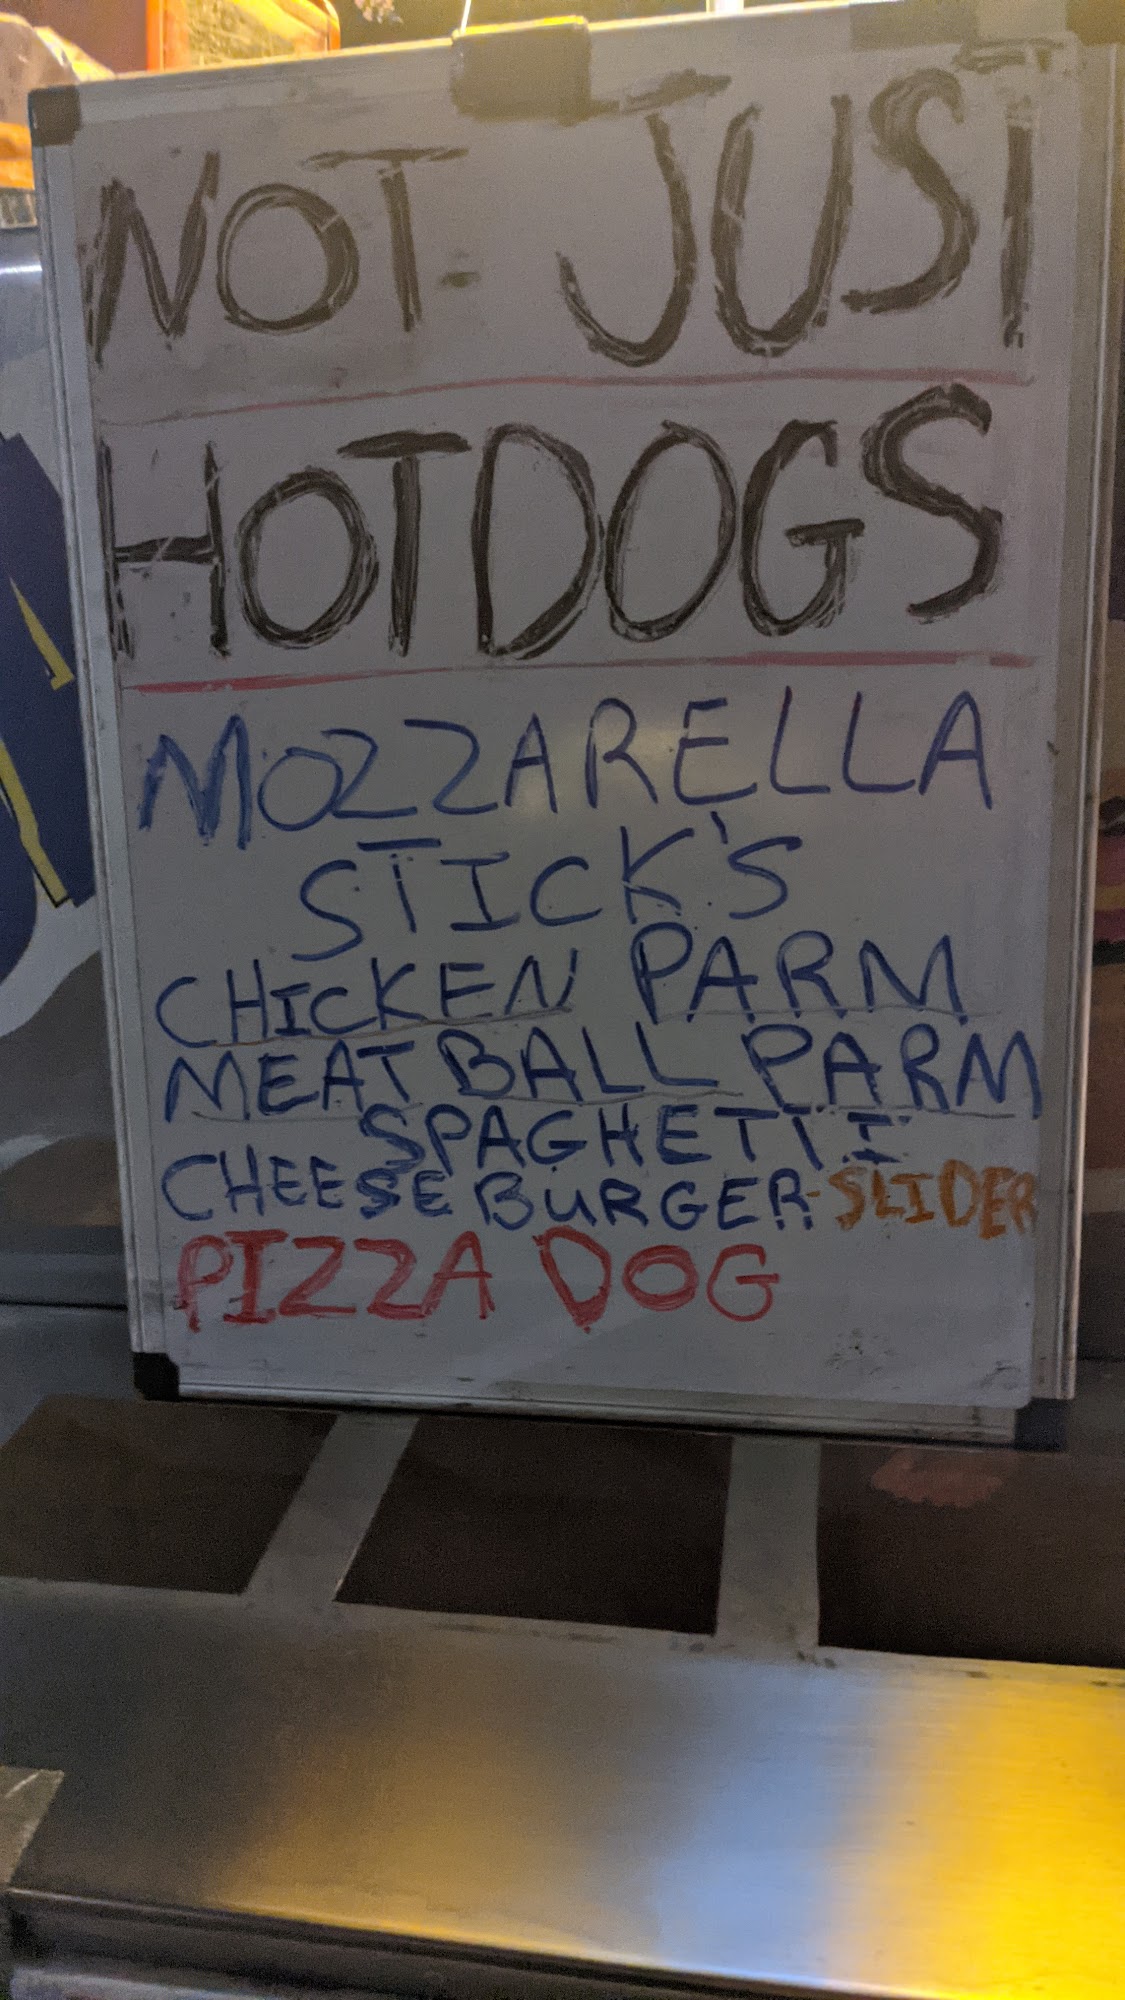 NOT JUST
HOTDOGS
MOZZARELLA
STICK'S
CHICKEN PARM
MEATBALL PARM
SPAGHETTI
CHEESEBURGER-SLIDER
PIZZA DOG